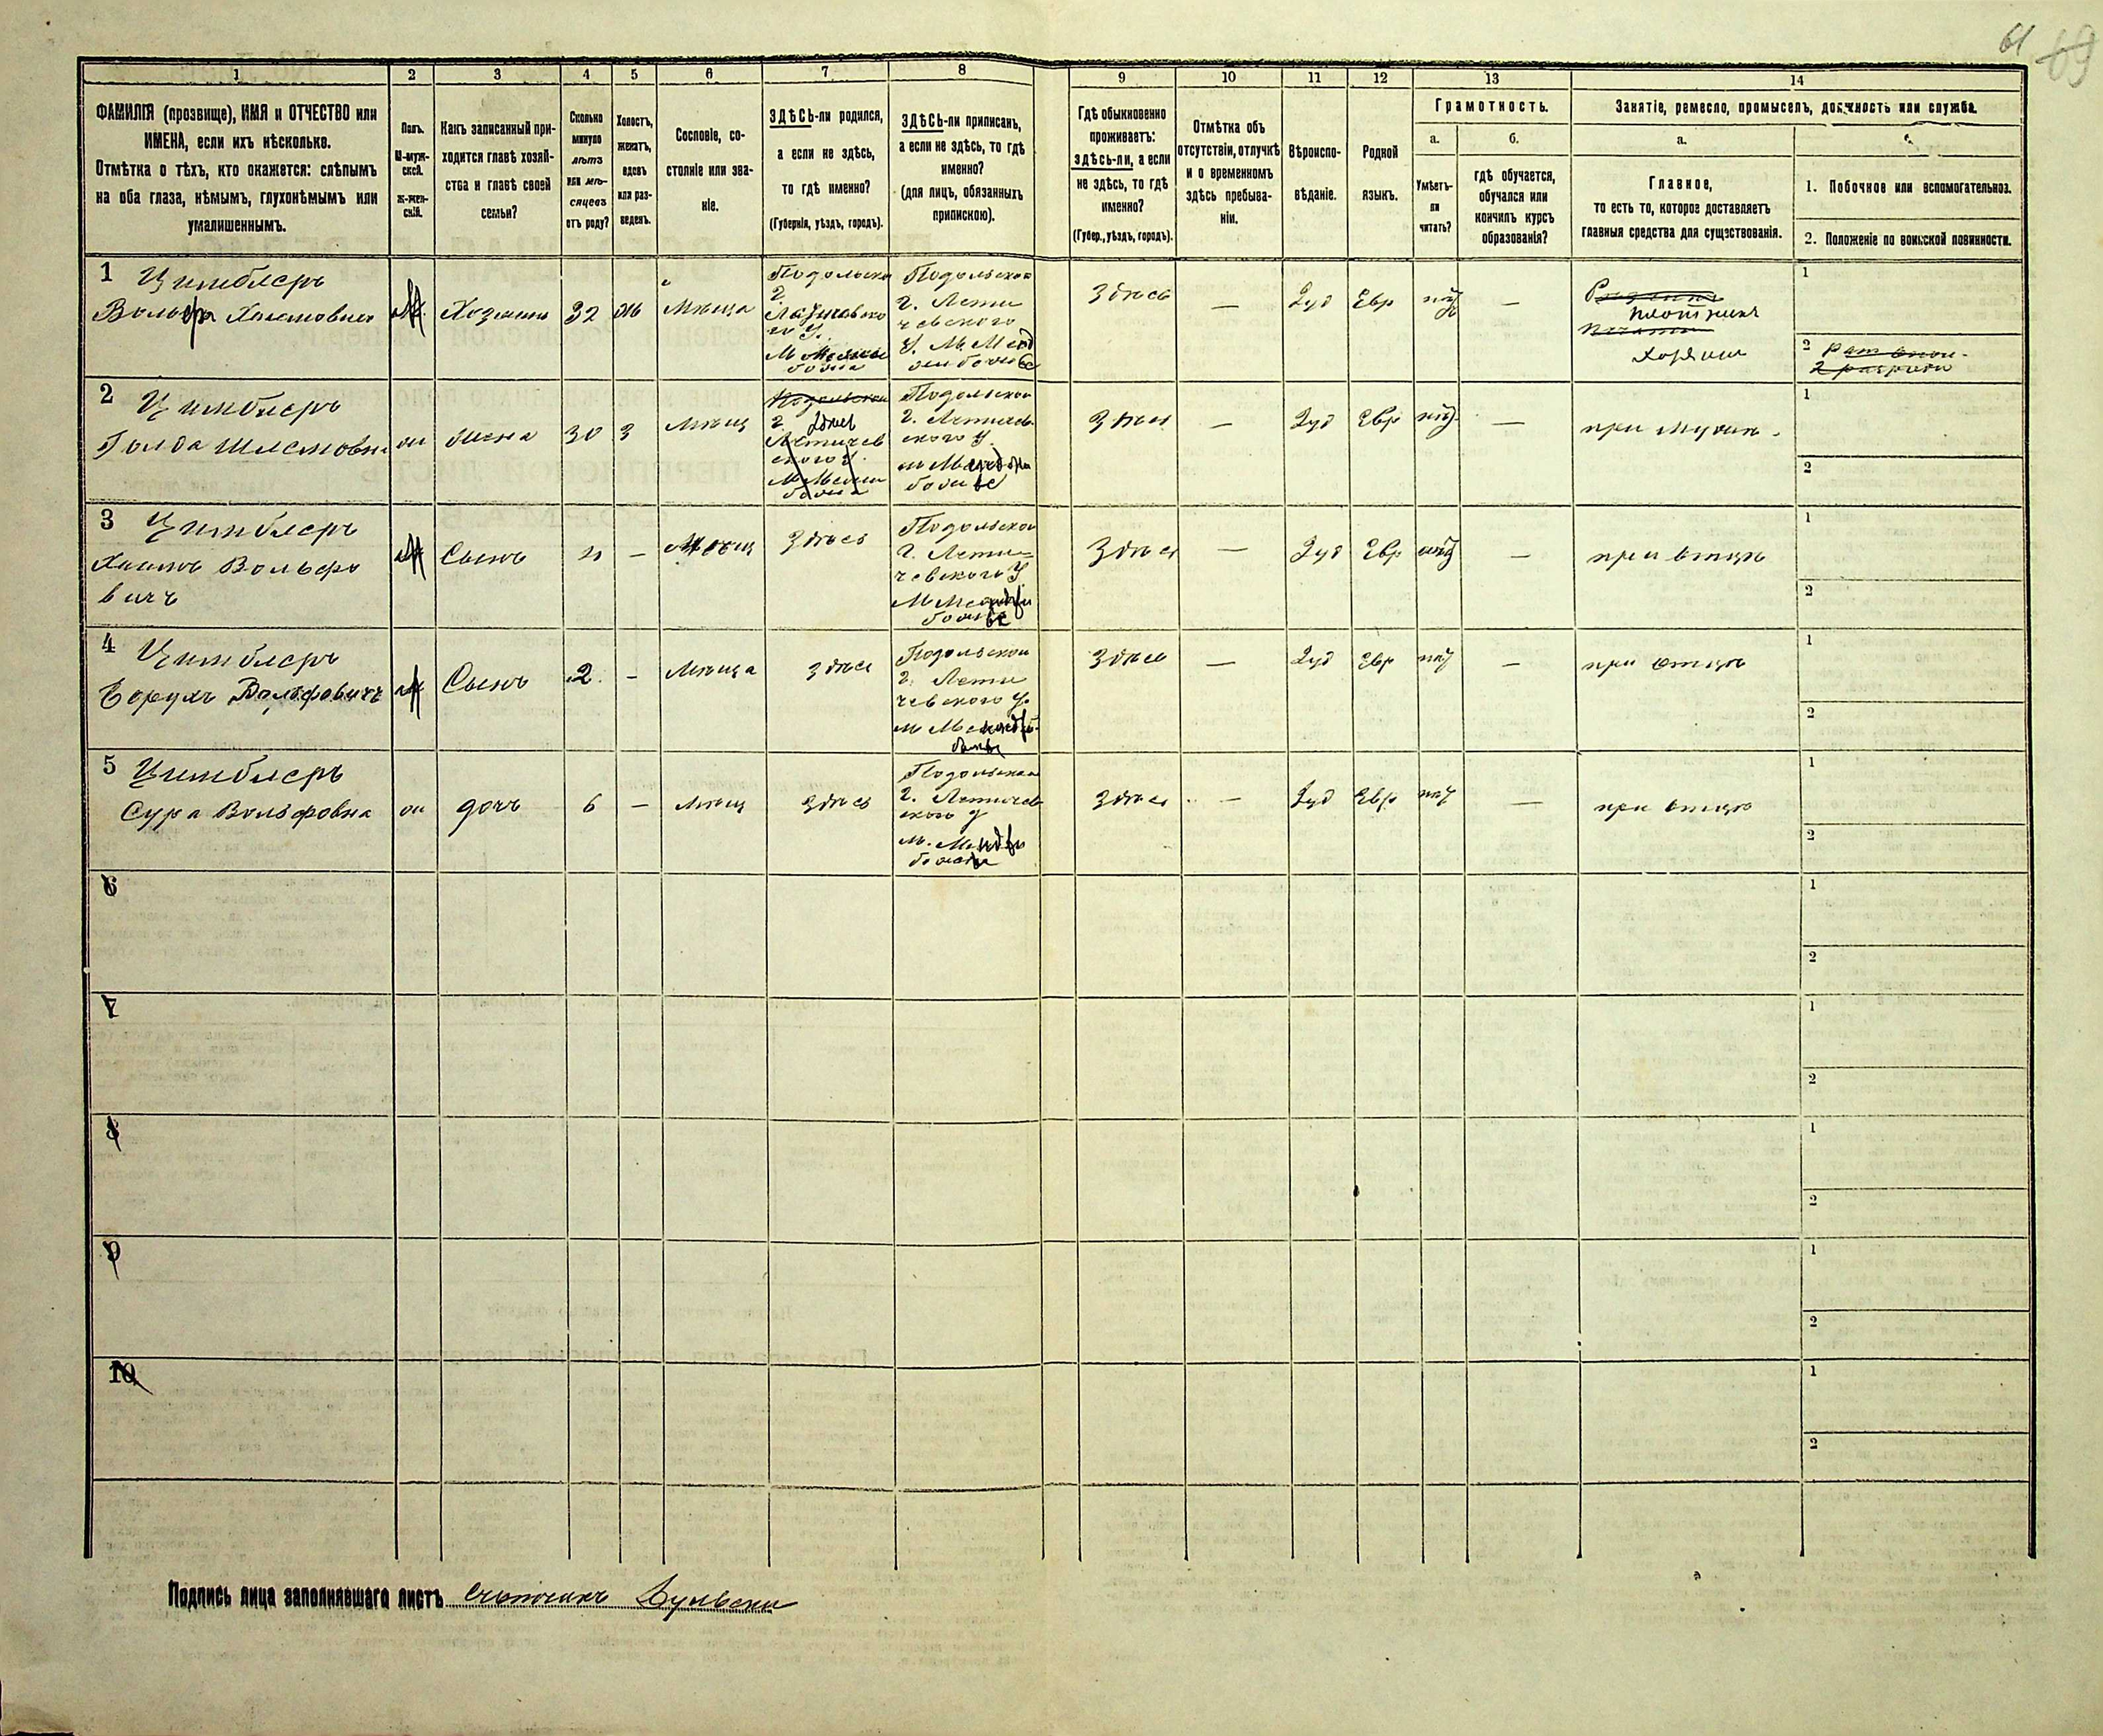 61 69
1
2
3
4
5
6
7
8
9
10
11
12
13
14
ФАМИЛІЯ (прозвище), ИМЯ и ОТЧЕСТВО или
ИМЕНА, если ихъ нѣсколько.
Отмѣтка о тѣхъ, кто окажется: слѣпымъ
на оба глаза, нѣмымъ, глухонѣмымъ или
умалишеннымъ.
Полъ.
М-муж-
ской.
Ж-жен-
скій.
Какъ записанный при-
ходится главѣ хозяй-
ства и главѣ своей
семьи?
Сколько
минуло
лѣтъ
или мѣ-
сяцевъ
отъ роду?
Холостъ,
женатъ,
вдовъ
или раз-
веденъ.
Сословіе, со-
стояніе или зва-
ніе.
ЗДѢСЬ-ли родился,
а если не здѣсь,
то гдѣ именно?
(Губернія, уѣздъ, городъ).
ЗДѢСЬ-ли приписанъ,
а если не здѣсь, то гдѣ
именно?
(для лицъ, обязанныхъ
припискою).
Гдѣ обыкновенно
проживаетъ:
здѣсь-ли, а если
не здѣсь, то гдѣ
именно?
(Губер., уѣздъ, городъ).
Отмѣтка объ
отсутствіи, отлучкѣ
и о временномъ
здѣсь пребыва-
ніи.
Вѣроиспо-
вѣданіе.
Родной
языкъ.
Грамотность.
а.
Умѣетъ-
ли
читать?
б.
гдѣ обучается,
обучался или
кончилъ курсъ
образованія?
Занятіе, ремесло, промыселъ, должность или служба.
а.
Главное,
то есть то, которое доставляетъ
главныя средства для существованія.
1. Побочное или вспомогательное.
2. Положеніе по воинской повинности.
1 Цимблеръ
Вольфъ Хаимовичъ
М
Хозяинъ
32
ж
Мѣща
Подольской
г.
Подольской
г. Лети
чевского
У. М. Меджи
Здѣсь
—
Іуд
Евр
нѣт
—
плотникъ
Хозяин
1
2
2 Цимблеръ
Голда
ж
жена
30
з
Мѣщ
Подольской
г. Здѣсь
Летичев
ского У.
Подольской
г. Летичев
ского У.
Здѣсь
—
Іуд
Евр
нѣт
—
при мужѣ
1
2
3 Цимблеръ
Хаимъ Вольфо
вичъ
М
Сынъ
4
—
Мѣщ
Здѣсь
Подольской
г. Лети=
чевского У
Здѣсь
—
Іуд
Евр
нѣт
—
при отцѣ
1
2
4 Цимблеръ
Борухъ Вольфовичъ
М
Сынъ
2
—
Мѣща
Здѣсь
Подольской
г. Лети
чевского У.
Здѣсь
—
Іуд
Евр
нѣт
—
при отцѣ
1
2
5 Цимблеръ
Сура Вольфовна
ж
дочь
6
—
Мѣщ
Здѣсь
Подольской
г. Летичев
ского У
Здѣсь
—
Іуд
Евр
нѣт
—
при отцѣ
1
2
6
1
2
7
1
2
8
1
2
9
1
2
10
1
2
Подпись лица заполнявшаго листъ Счетчикъ